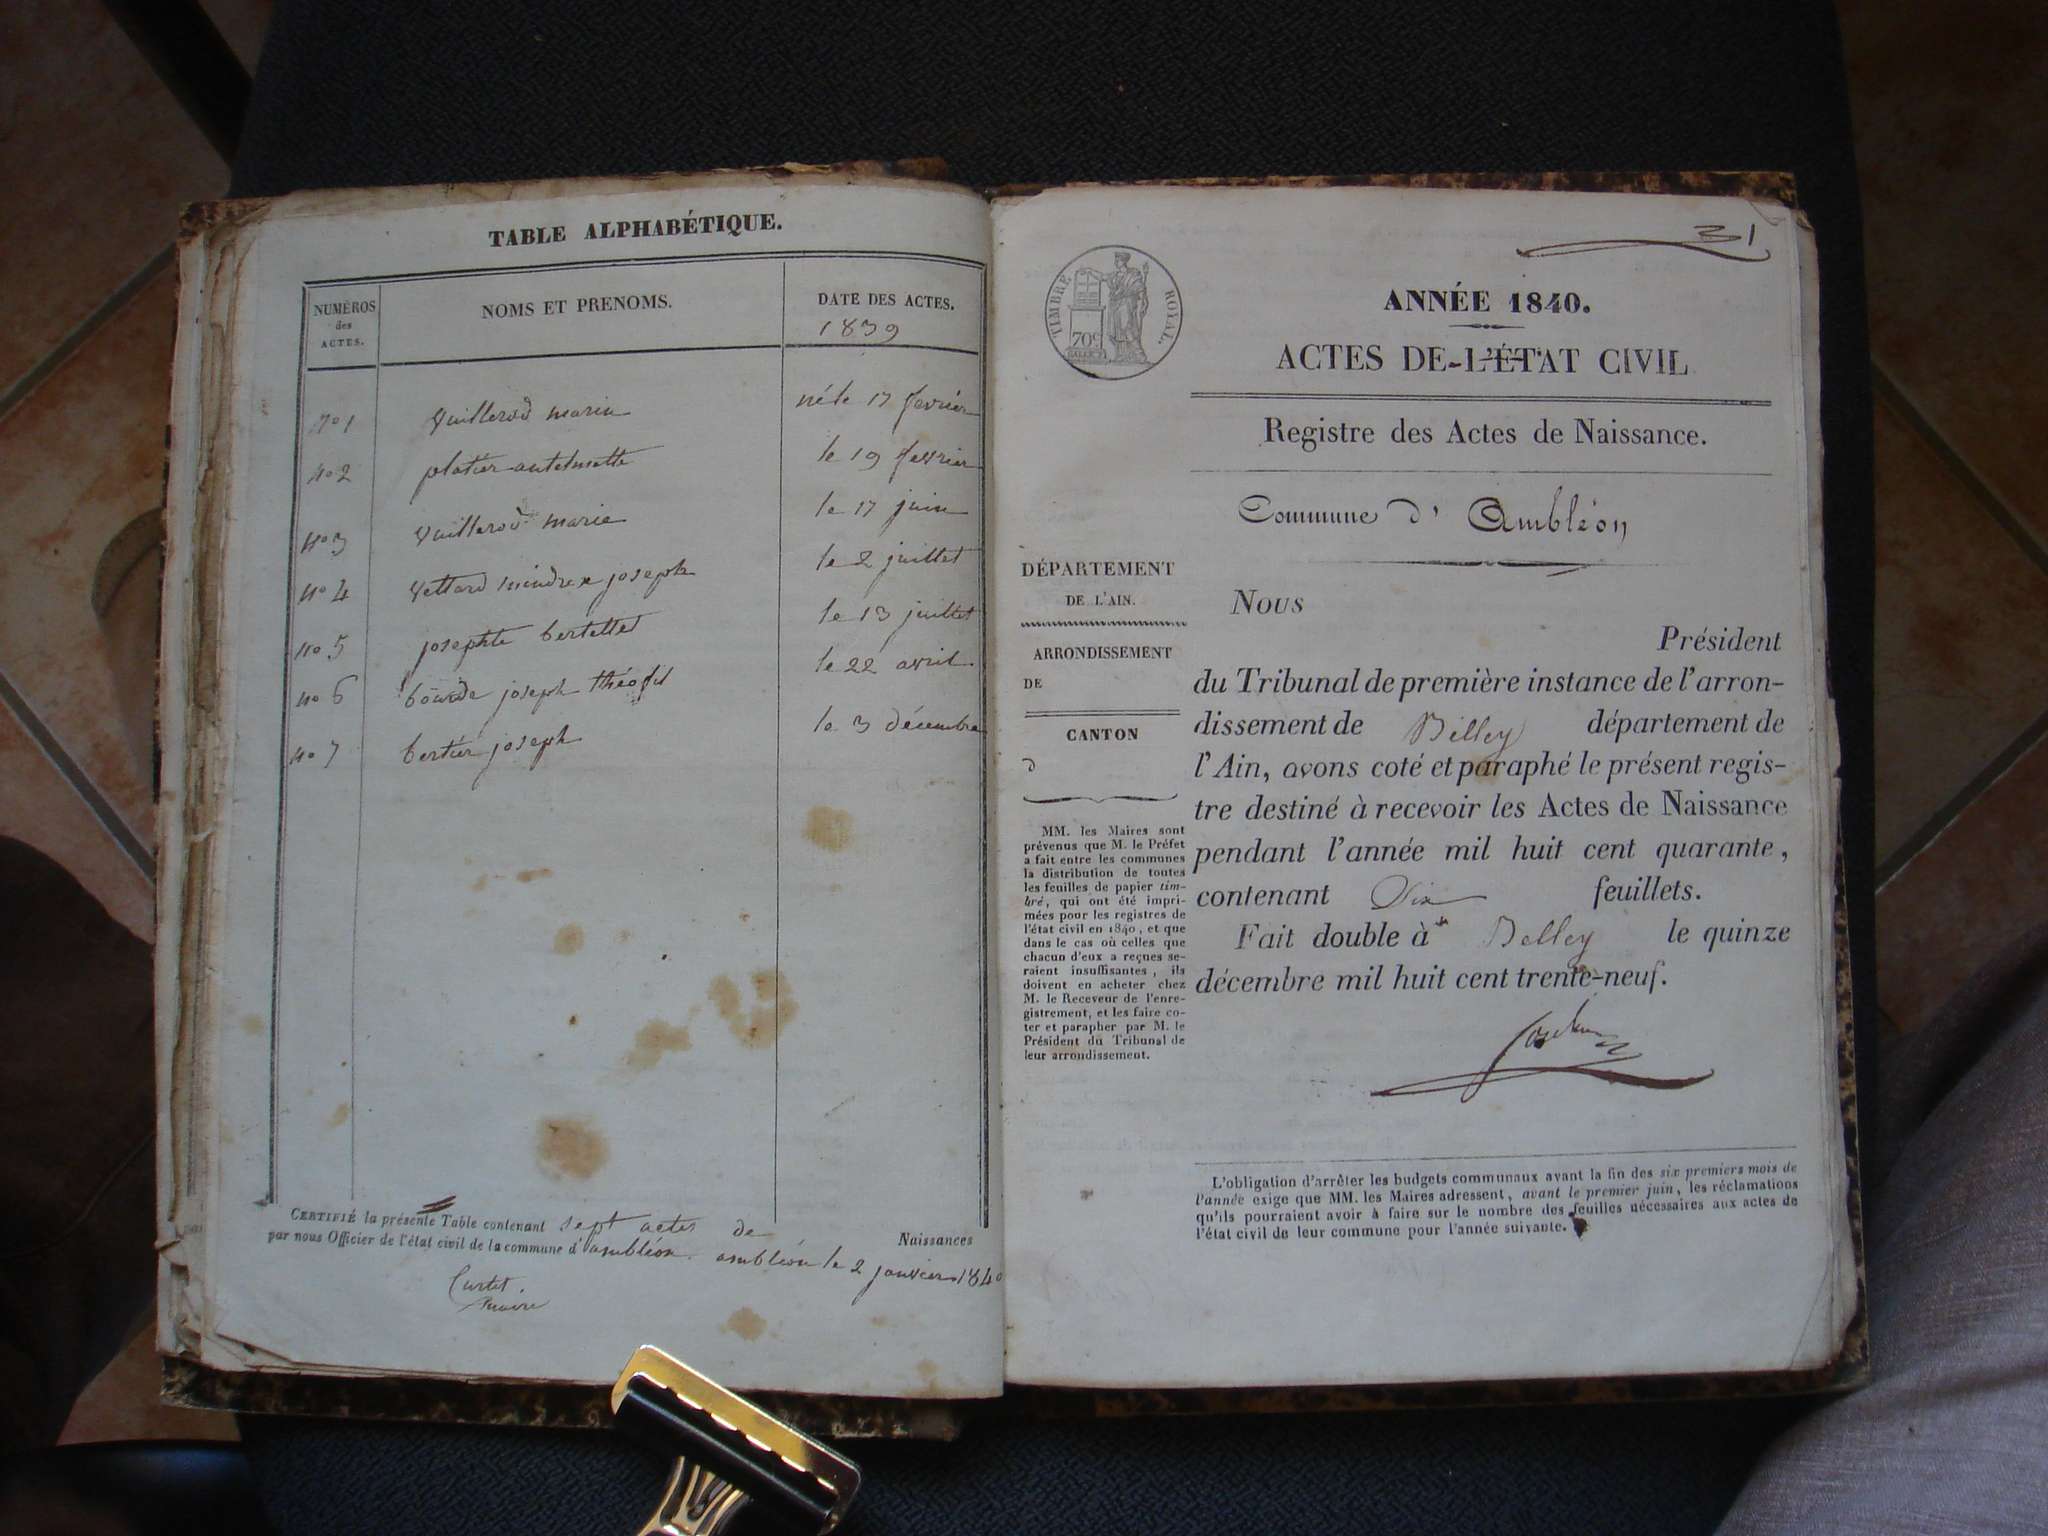 TABLE ALPHABÉTIQUE.
NUMÉROS des ACTES.
NOMS ET PRENOMS.
DATE DES ACTES.
1839
no 1 Vuillerod marin né le 17 fevrier
no 2 platier antelmette le 19 fevrier
no 3 Vuillerod marie le 17 juin
no 4 Vettard joseph le 2 juillet
no 5 josephte bertettet le 13 juillet
no 6 bourde joseph théofil le 22 avril
no 7 bertier joseph le 3 décembre
CERTIFIÉ la présente Table contenant sept actes de Naissances
par nous Officier de l'état civil de la commune d'ambléon. ambléon le 2 janvier 1840
Curtet.
maire
31
TIMBRE ROYAL.
70c
ANNÉE 1840.
ACTES DE L'ÉTAT CIVIL
Registre des Actes de Naissance.
Commune d' Ambléon
DÉPARTEMENT
DE L'AIN.
ARRONDISSEMENT
DE
CANTON
d
MM. les Maires sont
prévenus que M. le Préfet
a fait entre les communes
la distribution de toutes
les feuilles de papier tim-
bré, qui ont été impri-
mées pour les registres de
l'état civil en 1840, et que
dans le cas où celles que
chacun d'eux a reçues se-
raient insuffisantes, ils
doivent en acheter chez
M. le Receveur de l'enre-
gistrement, et les faire co-
ter et parapher par M. le
Président du Tribunal de
leur arrondissement.
Nous
Président
du Tribunal de première instance de l'arron-
dissement de Belley département de
l'Ain, avons coté et paraphé le présent regis-
tre destiné à recevoir les Actes de Naissance
pendant l'année mil huit cent quarante,
contenant Dix feuillets.
Fait double à Belley le quinze
décembre mil huit cent trente-neuf.
L'obligation d'arrêter les budgets communaux avant la fin des six premiers mois de
l'année exige que MM. les Maires adressent, avant le premier juin, les réclamations
qu'ils pourraient avoir à faire sur le nombre des feuilles nécessaires aux actes de
l'état civil de leur commune pour l'année suivante.